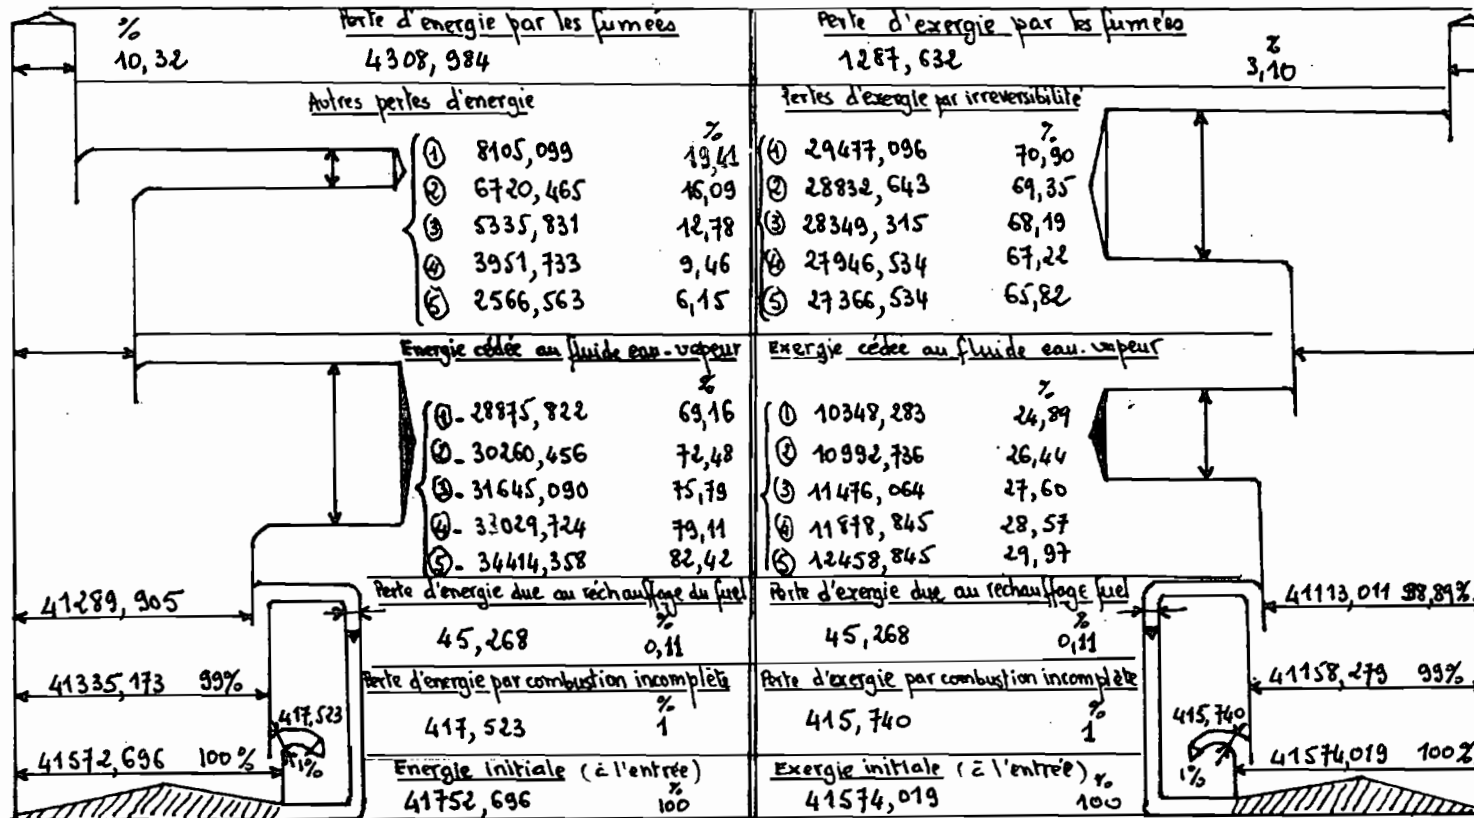 Perte d'energie par les fumées
% 
10,32 4308,984
Autres pertes d'energie
%
① 8105,099 19,41
② 6720,465 16,09
③ 5335,831 12,78
④ 3951,733 9,46
⑤ 2566,563 6,15
Energie cédée au fluide eau-vapeur
%
①- 28875,822 69,16
②- 30260,456 72,48
③- 31645,090 75,79
④- 33029,724 79,11
⑤- 34414,358 82,42
41289,905
Perte d'énergie due au réchauffage du fuel
%
45,268 0,11
41335,173 99%
Perte d'énergie par combustion incomplète
%
417,523 1
417,523
1%
41572,696 100%
Energie initiale (à l'entrée)
%
41752,696 100
Perte d'exergie par les fumées
%
1287,632 3,10
Pertes d'exergie par irreversibilité
%
① 29477,096 70,90
② 28832,643 69,35
③ 28349,315 68,19
④ 27946,534 67,22
⑤ 27366,534 65,82
Exergie cédée au fluide eau-vapeur
%
① 10348,283 24,89
② 10992,736 26,44
③ 11476,064 27,60
④ 11878,845 28,57
⑤ 12458,845 29,97
Perte d'exergie due au réchauffage fuel
%
45,268 0,11
41113,011 98,89%
Perte d'exergie par combustion incomplète
%
415,740 1
41158,279 99%
415,740
1%
41574,019 100%
Exergie initiale (à l'entrée)
%
41574,019 100